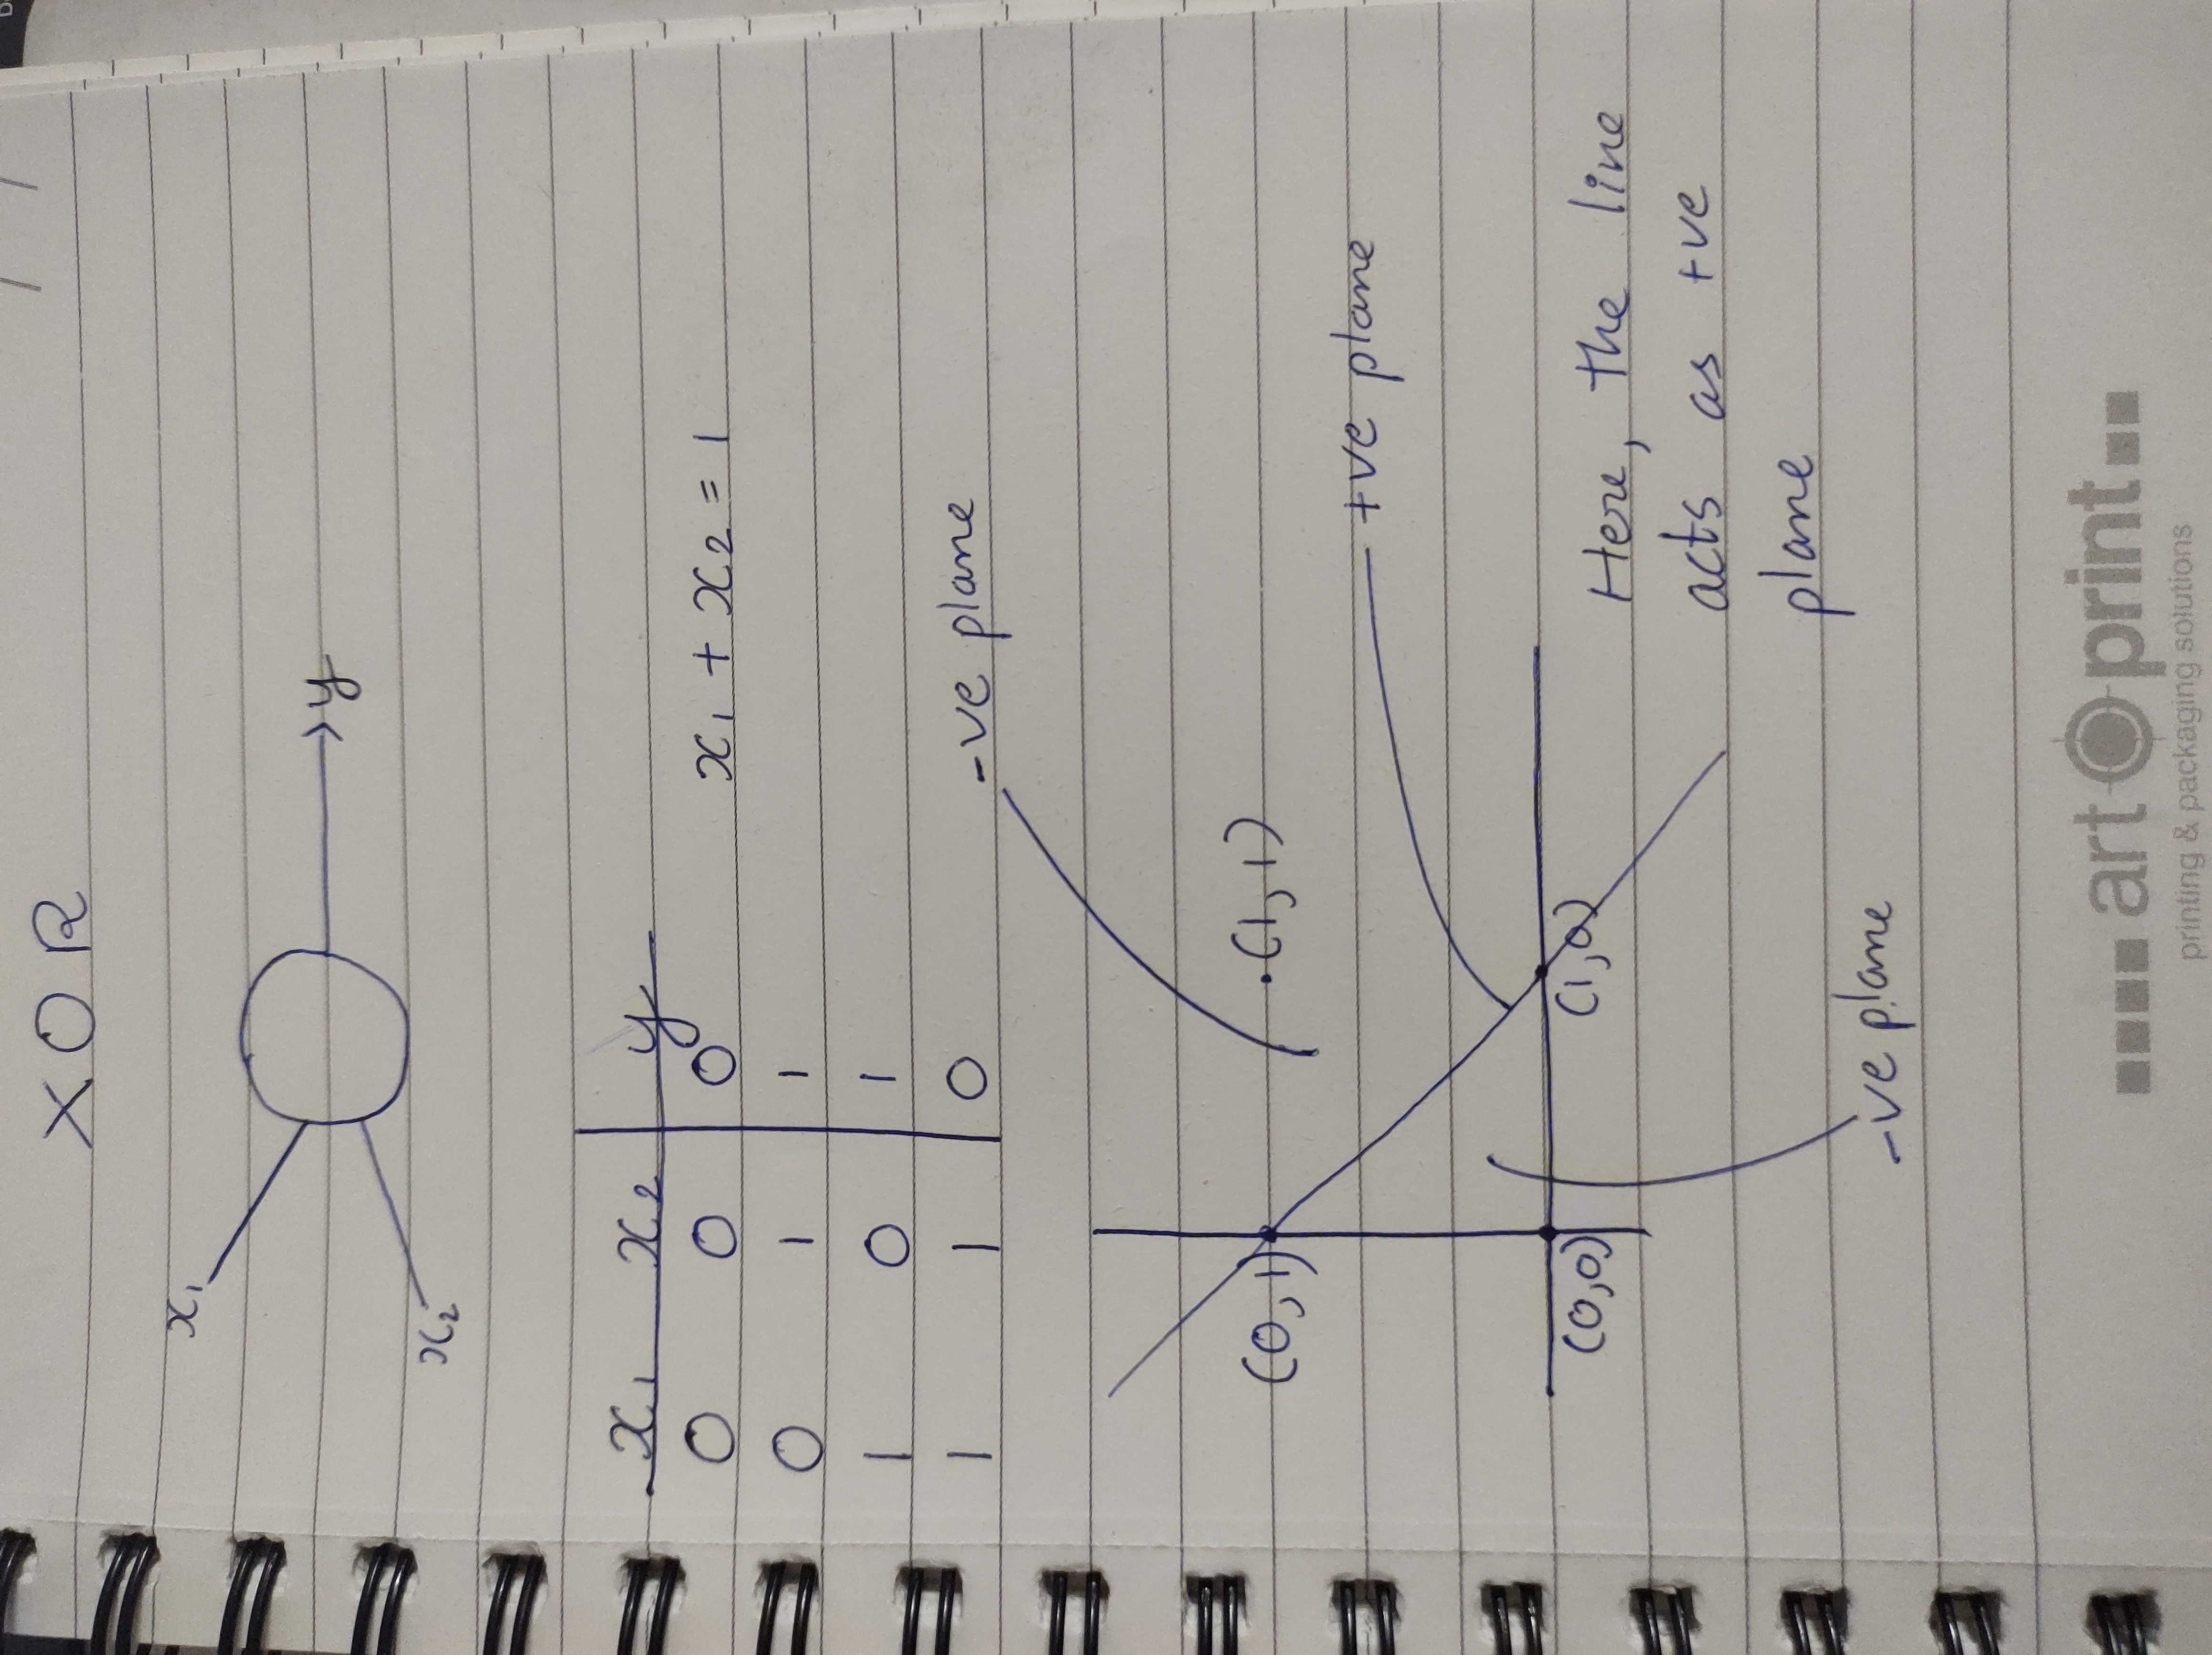 XOR
x₁
x₂
y
x₁ x₂ y
0 0 0
x₁ + x₂ = 1
0 1 1
1 0 1
1 1 0
-ve plane
(0,1)
.(1,1)
+ve plane
(0,0)
(1,0)
Here, the line
acts as +ve
plane
-ve plane
art print
printing & packaging solutions